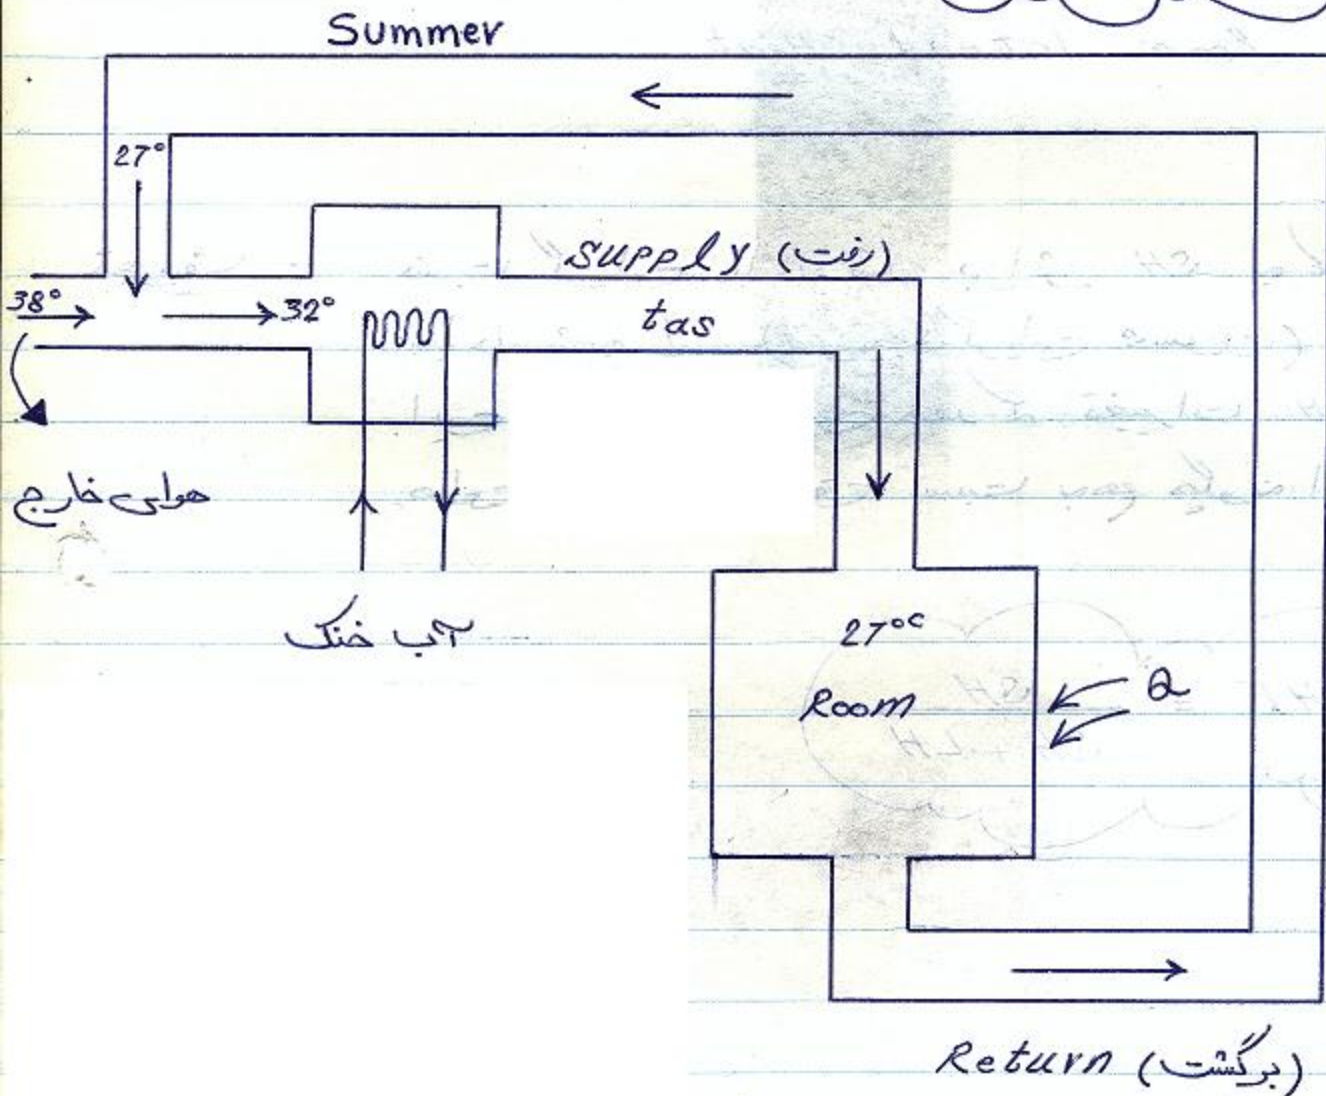 Summer
27°
supply (رفت)
38°
32°
tas
هوای خارج
آب خنک
27°C
Room
Q
Return (برگشت)